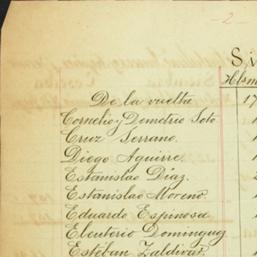 - 2 -
Si
Hsm
De la vuelta 17
Cornelio y Demetrio Soto
Cruz Serrano.
Diego Aguirre.
Estanislao Diaz.
Estanislao Moreno.
Eduardo Espinosa
Eleuterio Dominguez
Estéban Zaldivar.